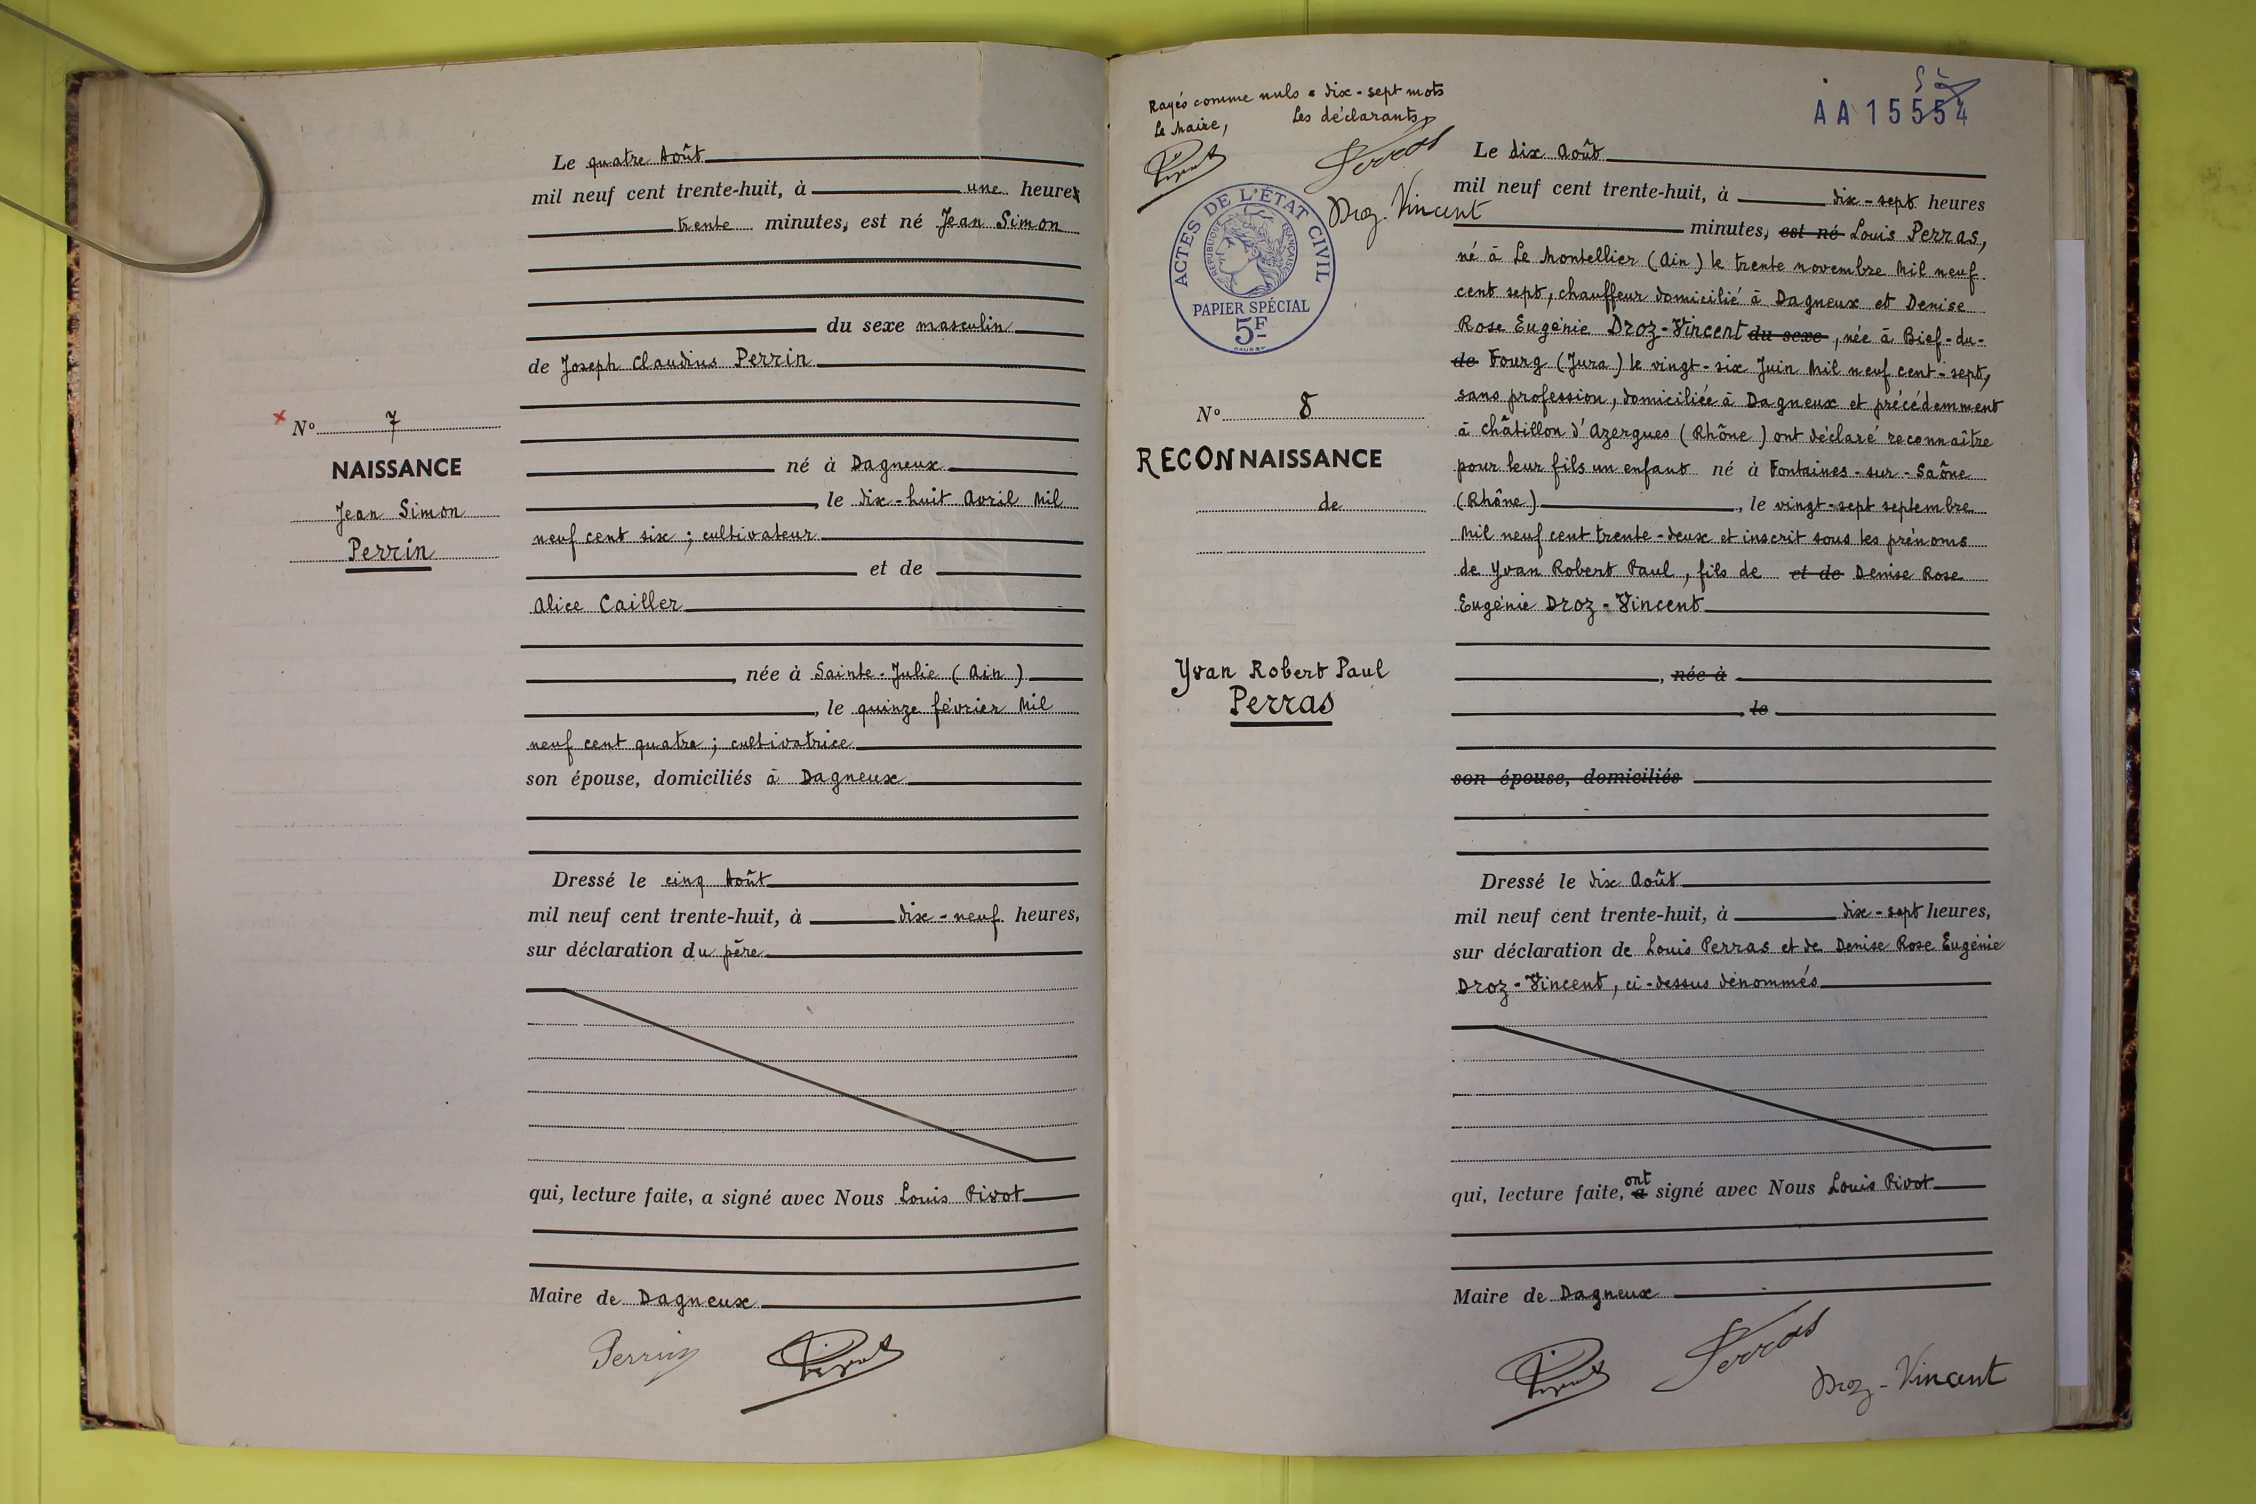 Le quatre Août
mil neuf cent trente-huit, à une heure
trente minutes, est né Jean Simon
du sexe masculin
de Joseph Claudius Perrin
né à Dagneux
, le dix-huit Avril Mil
neuf cent six ; cultivateur
et de
Alice Cailler
, née à Sainte-Julie (Ain)
, le quinze février Mil
neuf cent quatre ; cultivatrice
son épouse, domiciliés à Dagneux
Dressé le cinq Août
mil neuf cent trente-huit, à dix-neuf heures,
sur déclaration du père
qui, lecture faite, a signé avec Nous Louis Pivot
Maire de Dagneux
Perrin Pivot
x No 7
NAISSANCE
Jean Simon
Perrin
Rayés comme nuls = dix-sept mots
Le Maire, Les déclarants
Pivot Perras
Droz-Vincent
ACTES DE L'ÉTAT CIVIL
RÉPUBLIQUE FRANÇAISE
PAPIER SPÉCIAL
5F
No 8
RECONNAISSANCE
de
Yvan Robert Paul
Perras
AA 15554
Le dix Août
mil neuf cent trente-huit, à dix-sept heures
minutes, est né Louis Perras,
né à Le Montellier (Ain) le trente novembre Mil neuf
cent sept, chauffeur domicilié à Dagneux et Denise
Rose Eugénie Droz-Vincent du sexe, née à Bief-du-
de Fourg (Jura) le vingt-six Juin Mil neuf cent-sept,
sans profession, domiciliée à Dagneux et précédemment
à châtillon d'Azergues (Rhône) ont déclaré reconnaître
pour leur fils un enfant né à Fontaines-sur-Saône
(Rhône), le vingt-sept septembre
Mil neuf cent trente-deux et inscrit sous les prénoms
de Yvan Robert Paul, fils de et de Denise Rose
Eugénie Droz-Vincent
, née à
, le
son épouse, domiciliés
Dressé le dix Août
mil neuf cent trente-huit, à dix-sept heures,
sur déclaration de Louis Perras et de Denise Rose Eugénie
Droz-Vincent, ci-dessus dénommés
qui, lecture faite, a ont signé avec Nous Louis Pivot
Maire de Dagneux
Pivot Perras Droz-Vincent